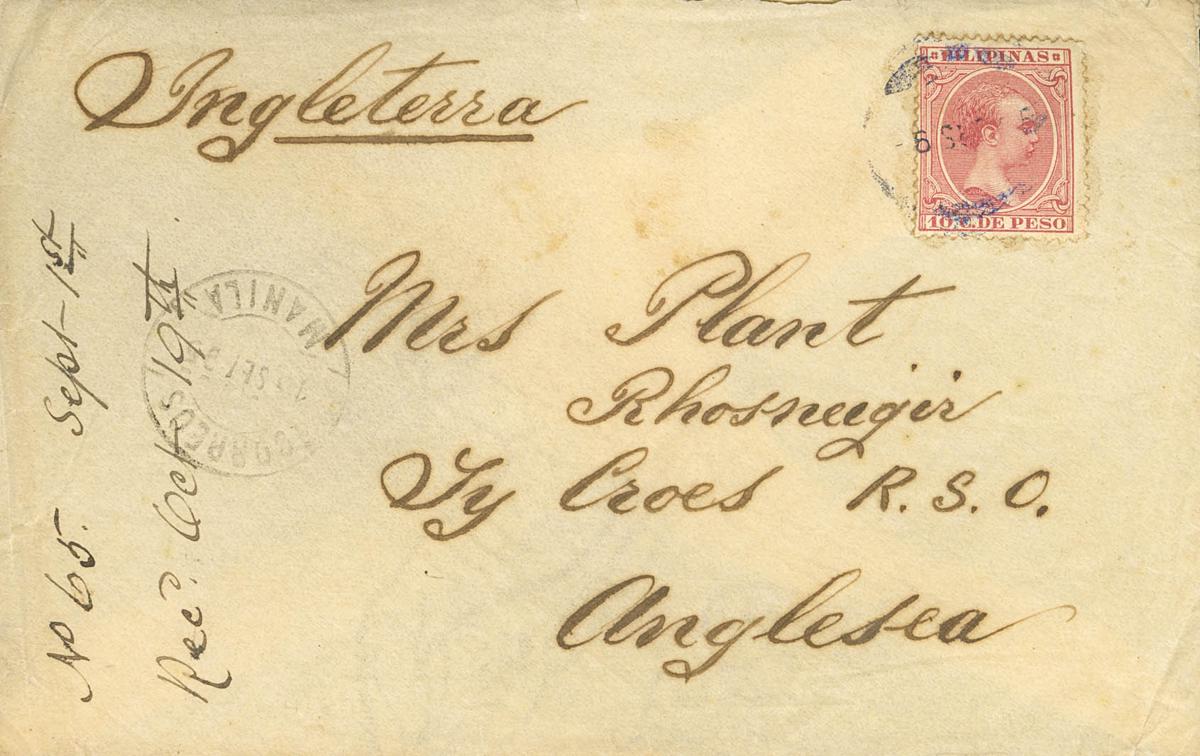 Ingleterra
FILIPINAS
10 C. DE PESO
Mrs Plant
Rhosneigir
Ty Croes R. S. O.
Anglesea
No 65. Sept 1st
Recd. Oct 19th
CORREOS
MANILA